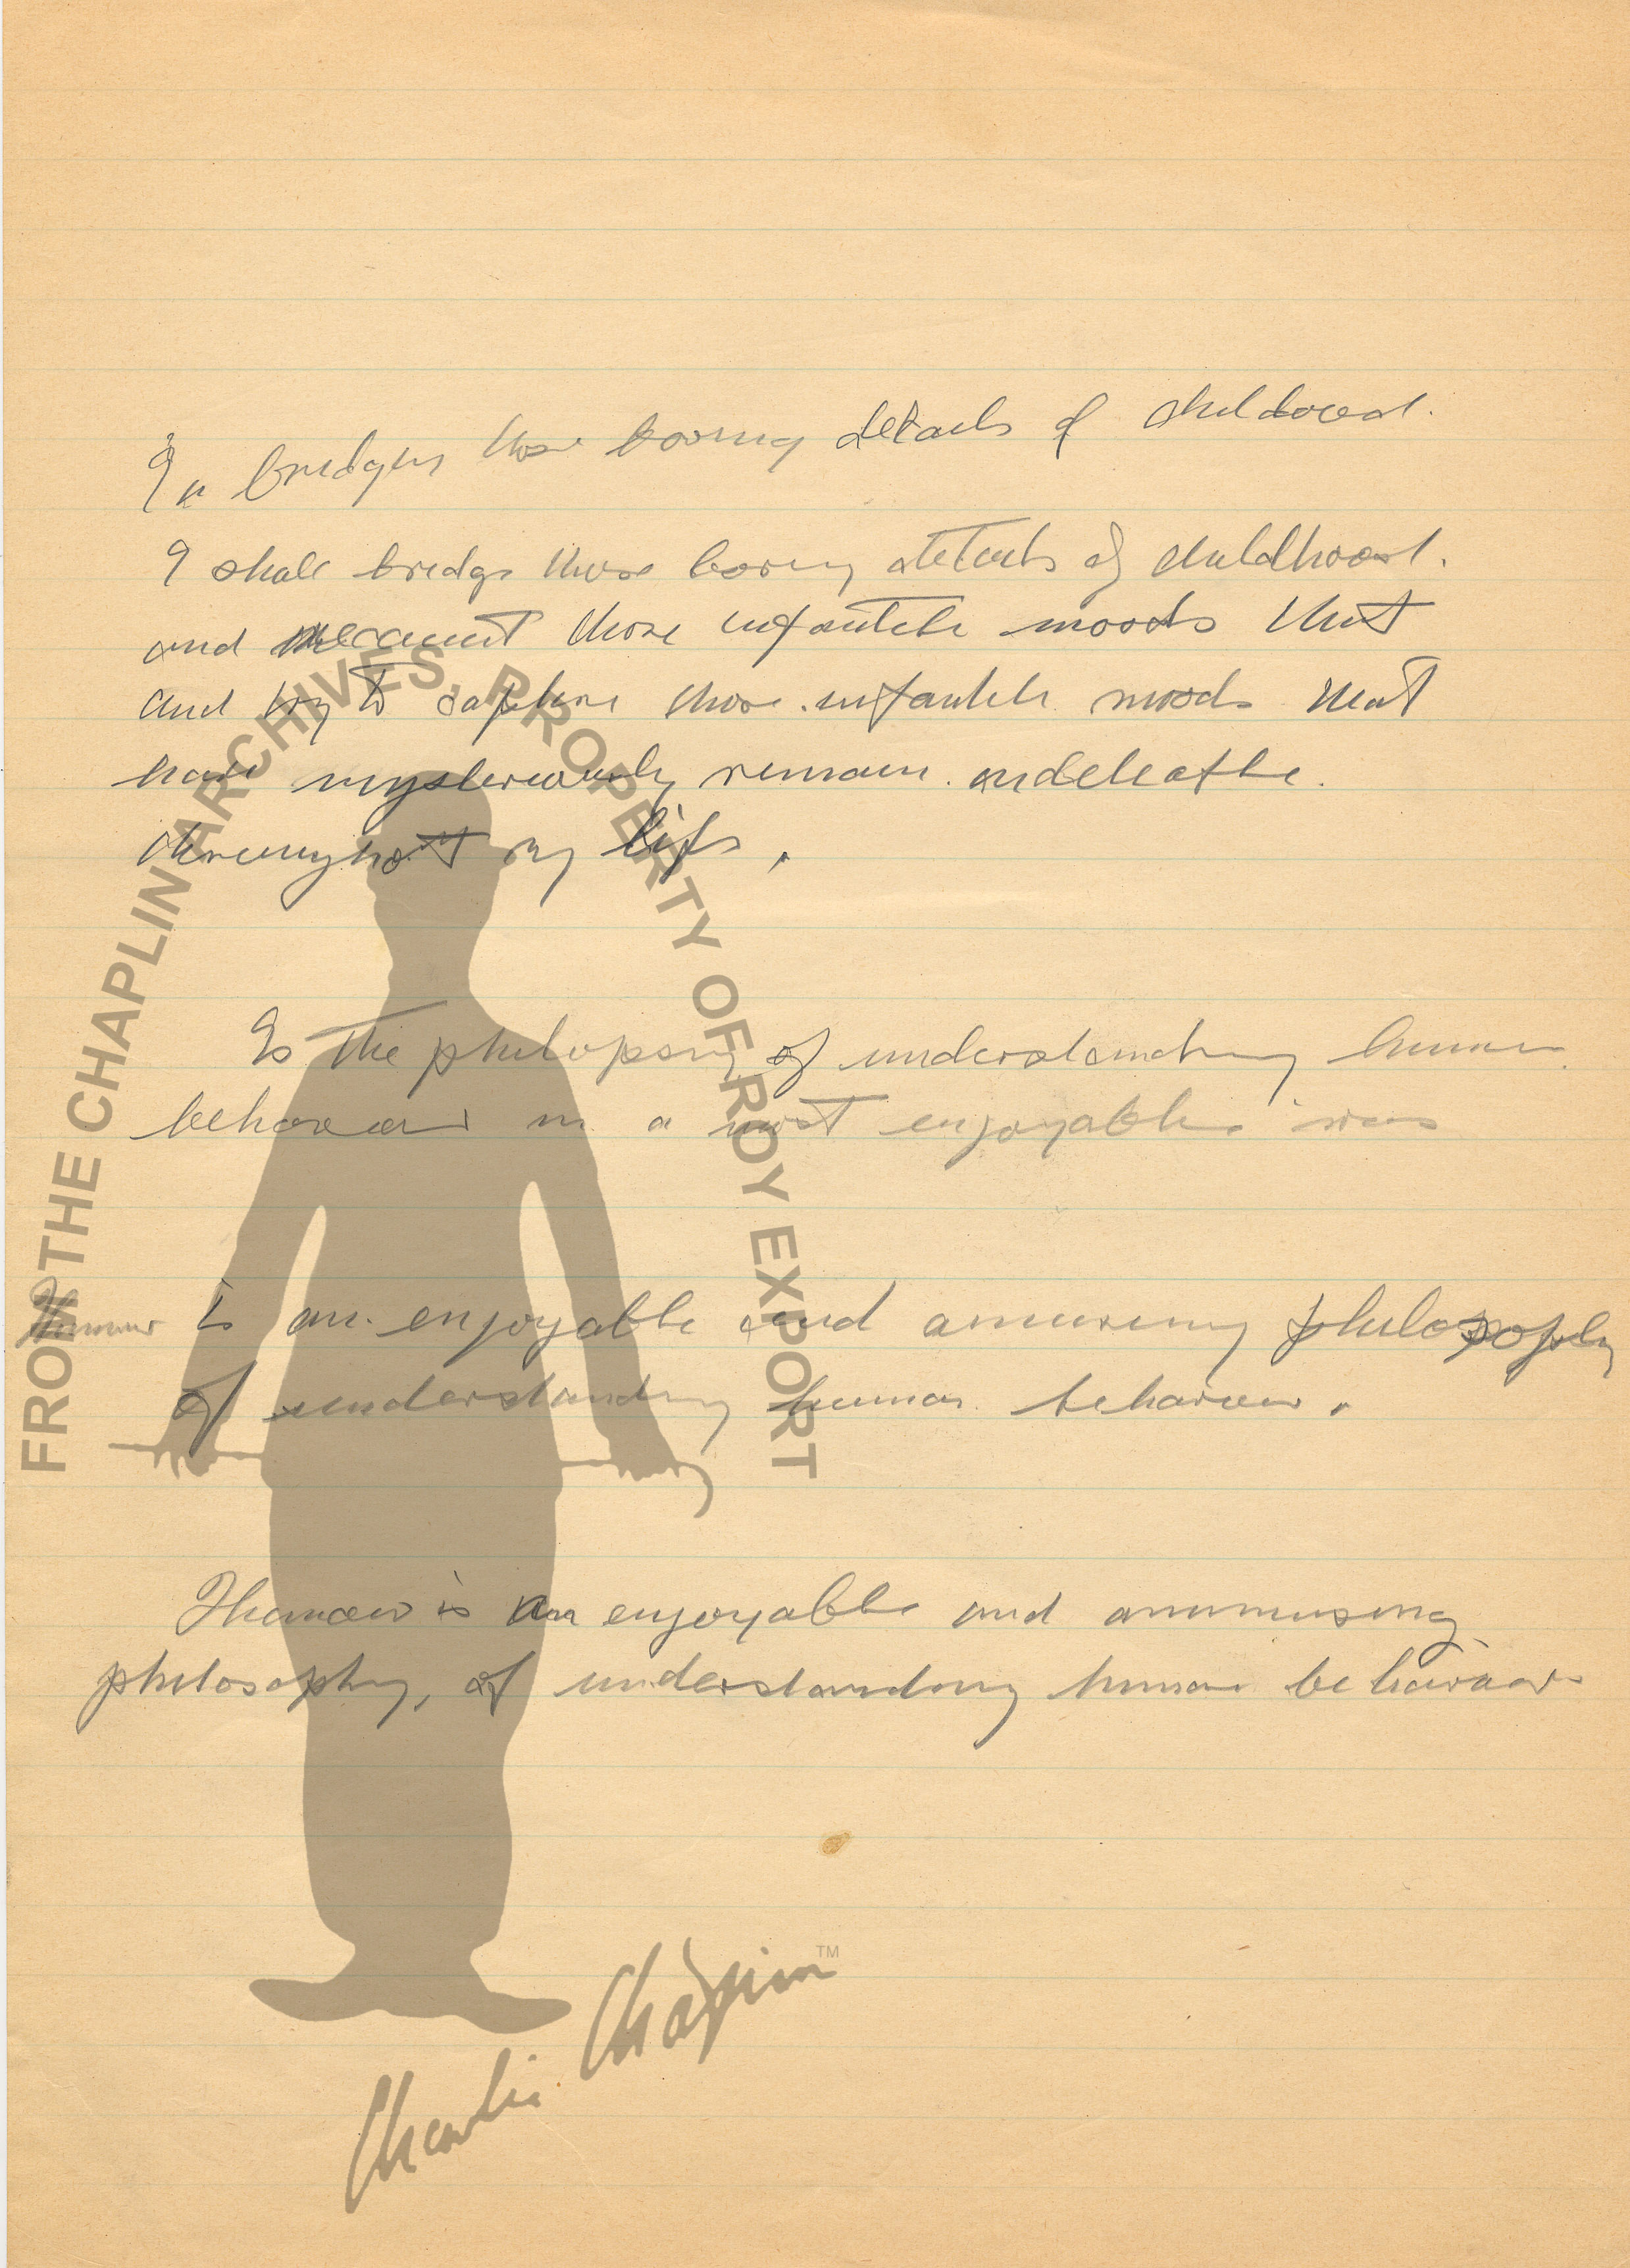 In bridging those boring details of childhood.
I shall bridge those boring details of childhood.
and recount those infantile moods that
and try to capture those infantile moods that
have mysteriously remain indeleable.
throughout my life.
Is the philopsoy of understanding human
behavior in a most enjoyable was
Humour is an enjoyable and amusing philosophy
of understanding human behaviour.
Humour is an enjoyable and ammusing
philosophy, of understanding human behaviour
FROM THE CHAPLIN ARCHIVES, PROPERTY OF ROY EXPORT
Charlie Chaplin TM